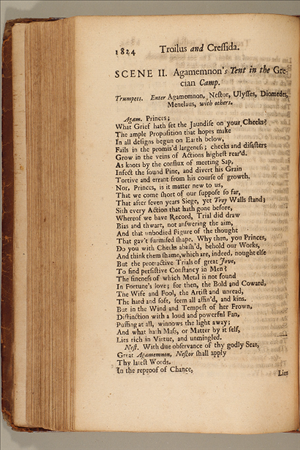 1824 Troilus and Cressida.
SCENE II. Agamemnon's Tent in the Gre-
cian Camp.
Trumpets. Enter Agamemnon, Nestor, Ulysses, Diomedes,
Menelaus, with others.
Agam. Princes;
What Grief hath set the Jaundise on your Cheeks?
The ample Proposition that hopes make
In all designs begun on Earth below,
Fails in the promis'd largeness; checks and disasters
Grow in the veins of Actions highest rear'd.
As knots by the conflux of meeting Sap,
Infect the sound Pine, and divert his Grain
Tortive and errant from his course of growth.
Nor, Princes, is it matter new to us,
That we come short of our suppose so far,
That after seven years Siege, yet Troy Walls stand;
Sith every Action that hath gone before,
Whereof we have Record, Trial did draw
Bias and thwart, not answering the aim,
And that unbodied Figure of the thought
That gav't surmised shape. Why then, you Princes,
Do you with Cheeks abash'd, behold our Works,
And think them shame, which are, indeed, nought else
But the protractive Trials of great Jove,
To find persistive Constancy in Men?
The fineness of which Metal is not found
In Fortune's love; for then, the Bold and Coward,
The Wife and Fool, the Artist and unread,
The hard and soft, seem all affin'd, and kin.
But in the Wind and Tempest of her Frown,
Distinction with a loud and powerful Fan,
Puffing at all, winnows the light away;
And what hath Mass, or Matter by it self,
Lies rich in Virtue, and unmingled.
Nest. With due observance of thy godly Seat,
Great Agamemnon, Nestor shall apply
Thy latest Words.
In the reproof of Chance,
Lies